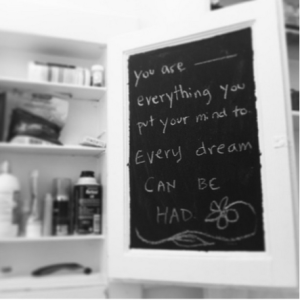 you are ———
everything you
put your mind to.
Every dream
CAN BE
HAD.